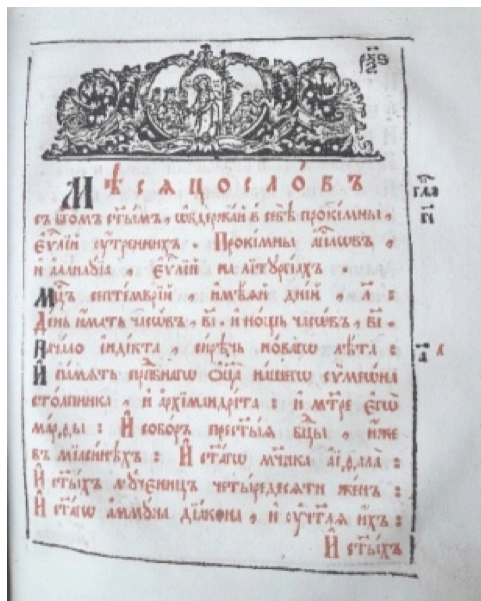 Мѣсѧцосло́въ
съ бг҃омъ ст҃ы́мъ, ѡ҆бдержа́й в̾ себѣ̀ прокі́мны,
є҆ѵⷢ҇лїй ᲂу҆́треннихъ. Прокі́мны а҆пⷭ҇лѡвъ,
и҆ а҆ллилꙋ́їа, є҆ѵⷢ҇лїй на лїтꙋргі́ахъ.
Мцⷭ҇ъ септе́мврїй, и҆мѣ́ѧй дні́й, л҃:
де́нь и҆́мать часѡ́въ, в҃і. и҆ но́щь часѡ́въ, в҃і.
Нача́ло і҆нді́кта, сирѣ́чь но́вагѡ лѣ́та:
И҆ па́мѧть прпⷣбнагѡ ѻ҆ц҃а̀ на́шегѡ сѷмеѡ́на
сто́лпника, и҆ а҆рхїмандрі́та: и҆ мт҃ре є҆гѡ̀
ма́рѳы: И҆ собо́ръ прест҃ы́ѧ бц҃ы, и҆́же
въ мїасинѣ́хъ: И҆ ст҃а́гѡ мч҃нка а҆їѳа́ла:
И҆ ст҃ы́хъ мꙋ́ченицъ четы́редесѧти же́нъ:
И҆ ст҃а́гѡ а҆ммꙋ́на дїа́кона, и҆ ᲂу҆чт҃лѧ и҆́хъ:
И҆ ст҃ы́хъ